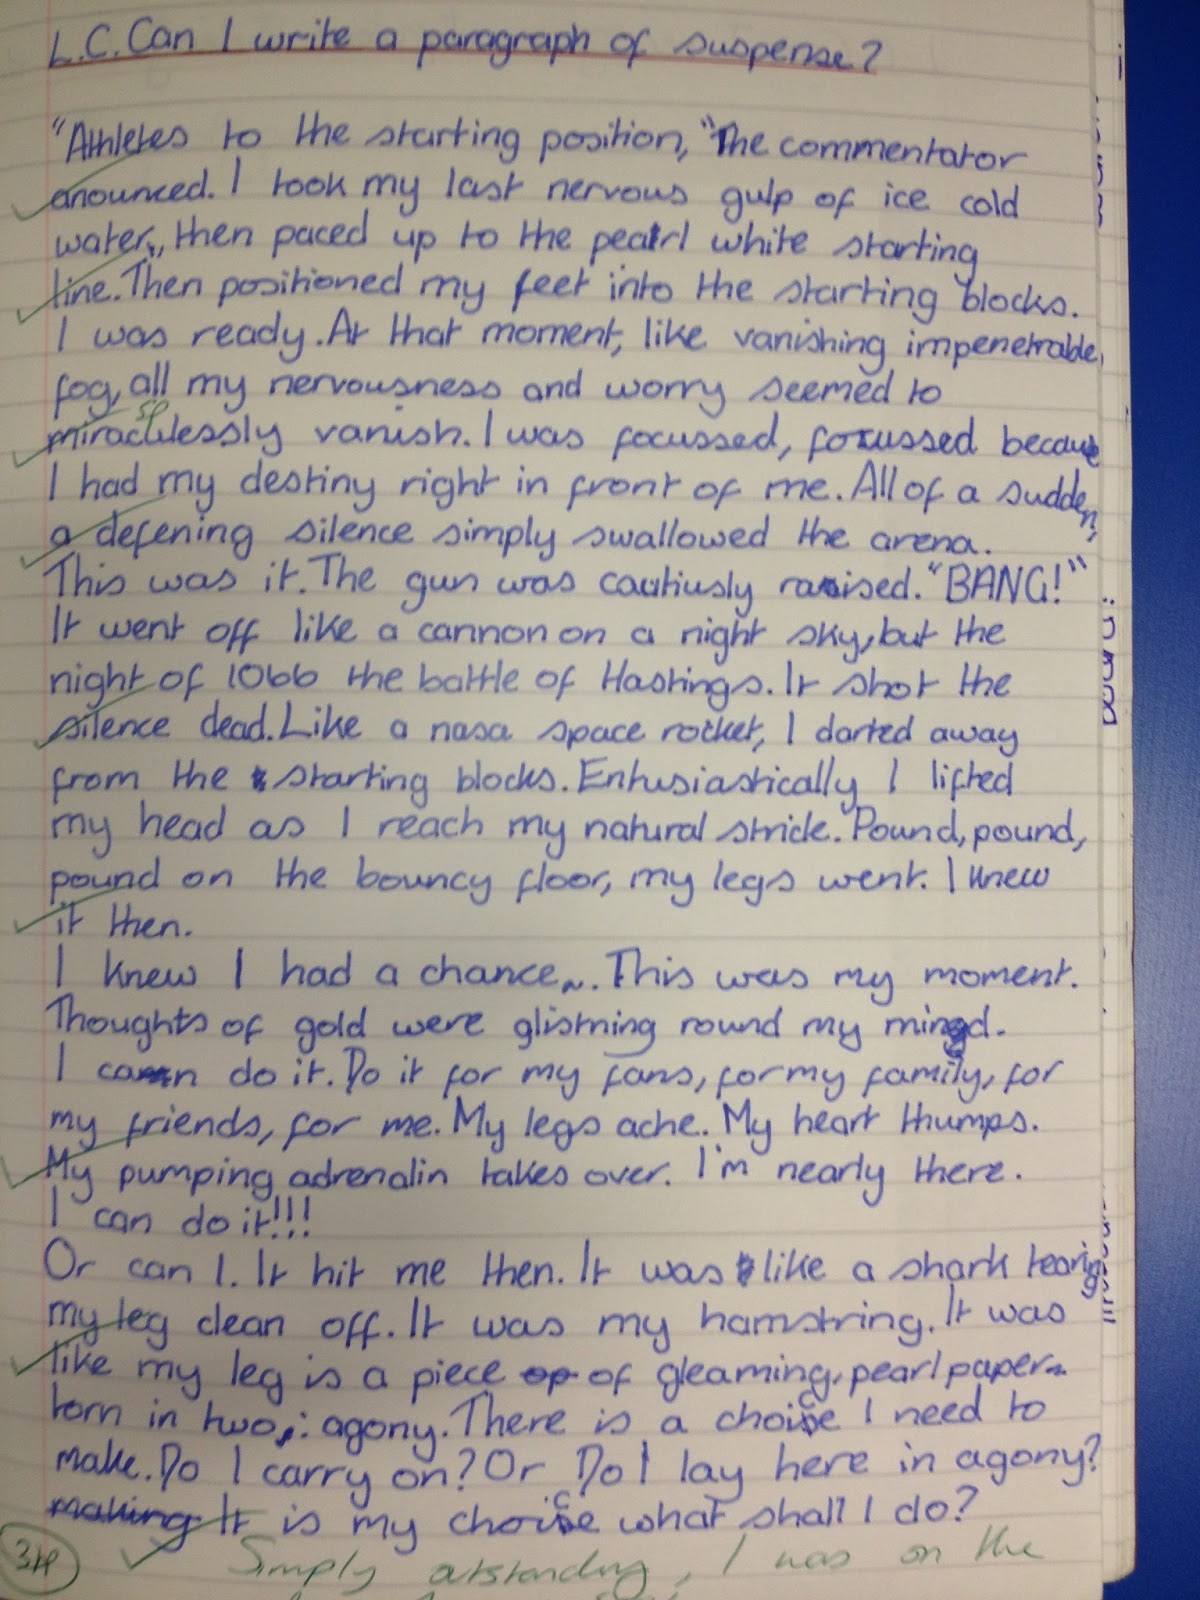 L.C. Can I write a paragraph of suspense?
"Athletes to the starting position," The commentator
anounced. I took my last nervous gulp of ice cold
water, then paced up to the pearl white starting
line. Then positioned my feet into the starting blocks.
I was ready. At that moment, like vanishing impenetrable
fog, all my nervousness and worry seemed to
sp
miraculessly vanish. I was focussed, focussed because
I had my destiny right in front of me. All of a sudden,
a defening silence simply swallowed the arena.
This was it. The gun was cautiusly raised. "BANG!"
It went off like a cannon on a night sky, but the
night of 1066 the battle of Hastings. It shot the
silence dead. Like a nasa space rocket, I darted away
from the starting blocks. Enthusiastically I lifted
my head as I reach my natural stride. Pound, pound,
pound on the bouncy floor, my legs went. I knew
it then.
I knew I had a chance. This was my moment.
Thoughts of gold were glistning round my mind.
I can do it. Do it for my fans, for my family, for
my friends, for me. My legs ache. My heart thumps.
My pumping adrenalin takes over. I'm nearly there.
I can do it!!!
Or can I. It hit me then. It was like a shark tearing
my leg clean off. It was my hamstring. It was
like my leg is a piece of gleaming, pearl paper
torn in two: agony. There is a choice I need to
make. Do I carry on? Or Do I lay here in agony?
It is my choice what shall I do?
Simply outstanding, I was on the